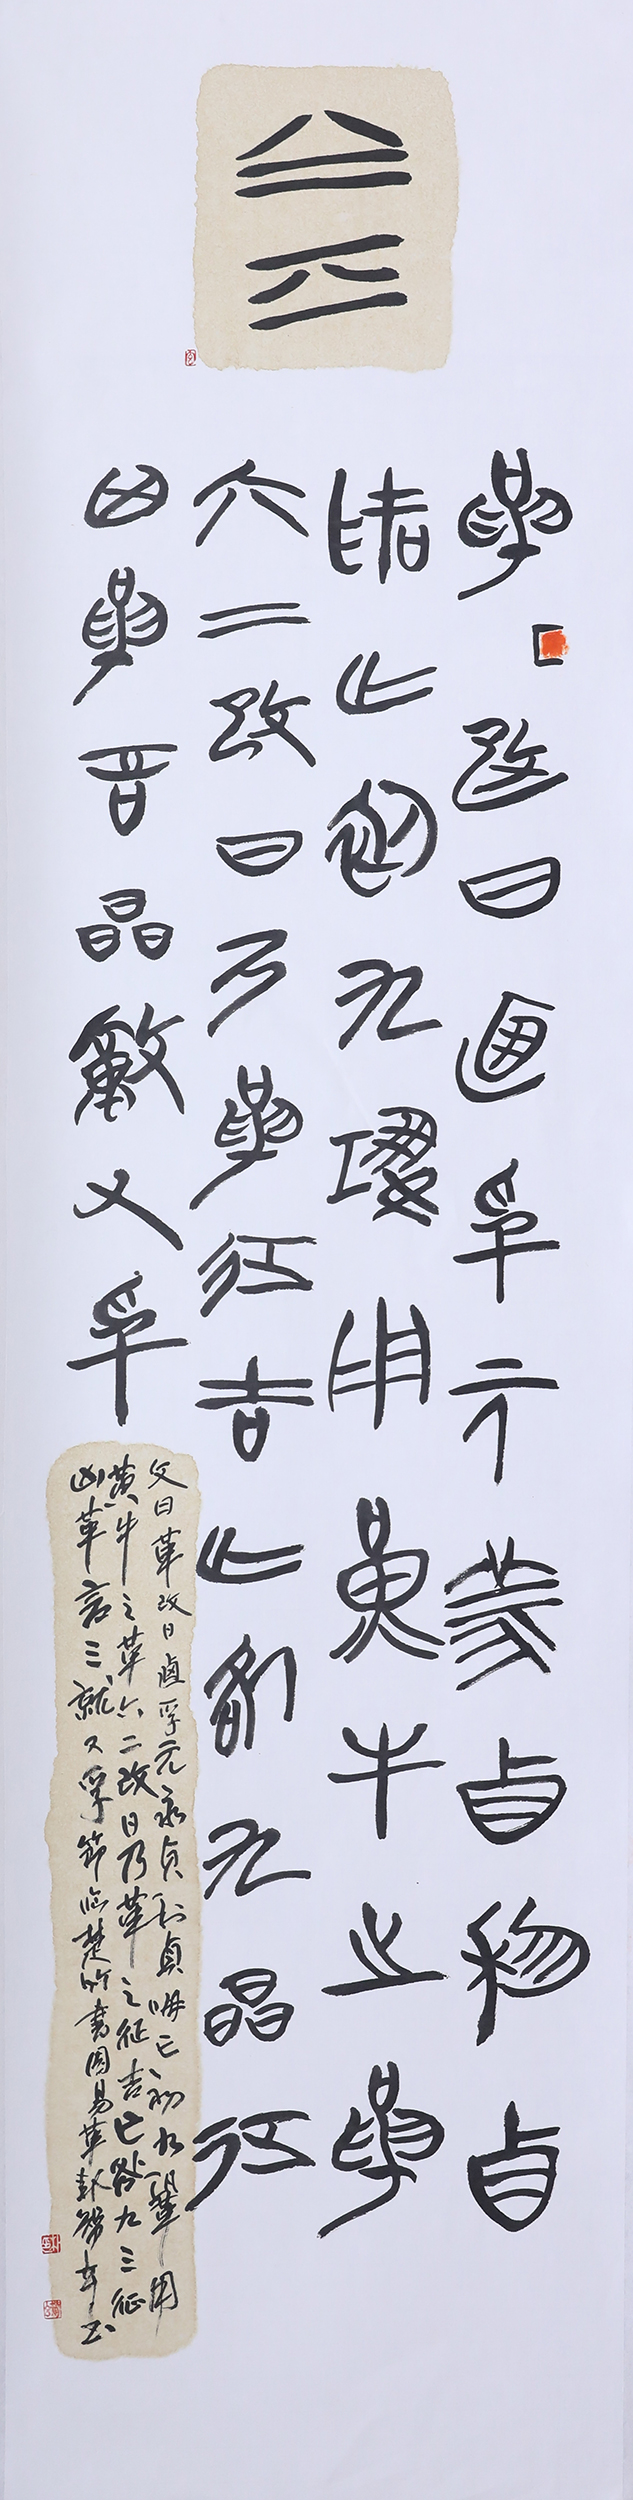 革改日卣孚元羕貞利貞
悔亡初九鞏用黃牛之革
六二改日乃革征吉亡咎九晶征
凶革言晶就又孚
文曰革改日卣孚元永貞利貞悔亡初九鞏用
黃牛之革六二改日乃革之征吉亡咎九三征
凶革言三就又孚節临楚竹書周易革卦